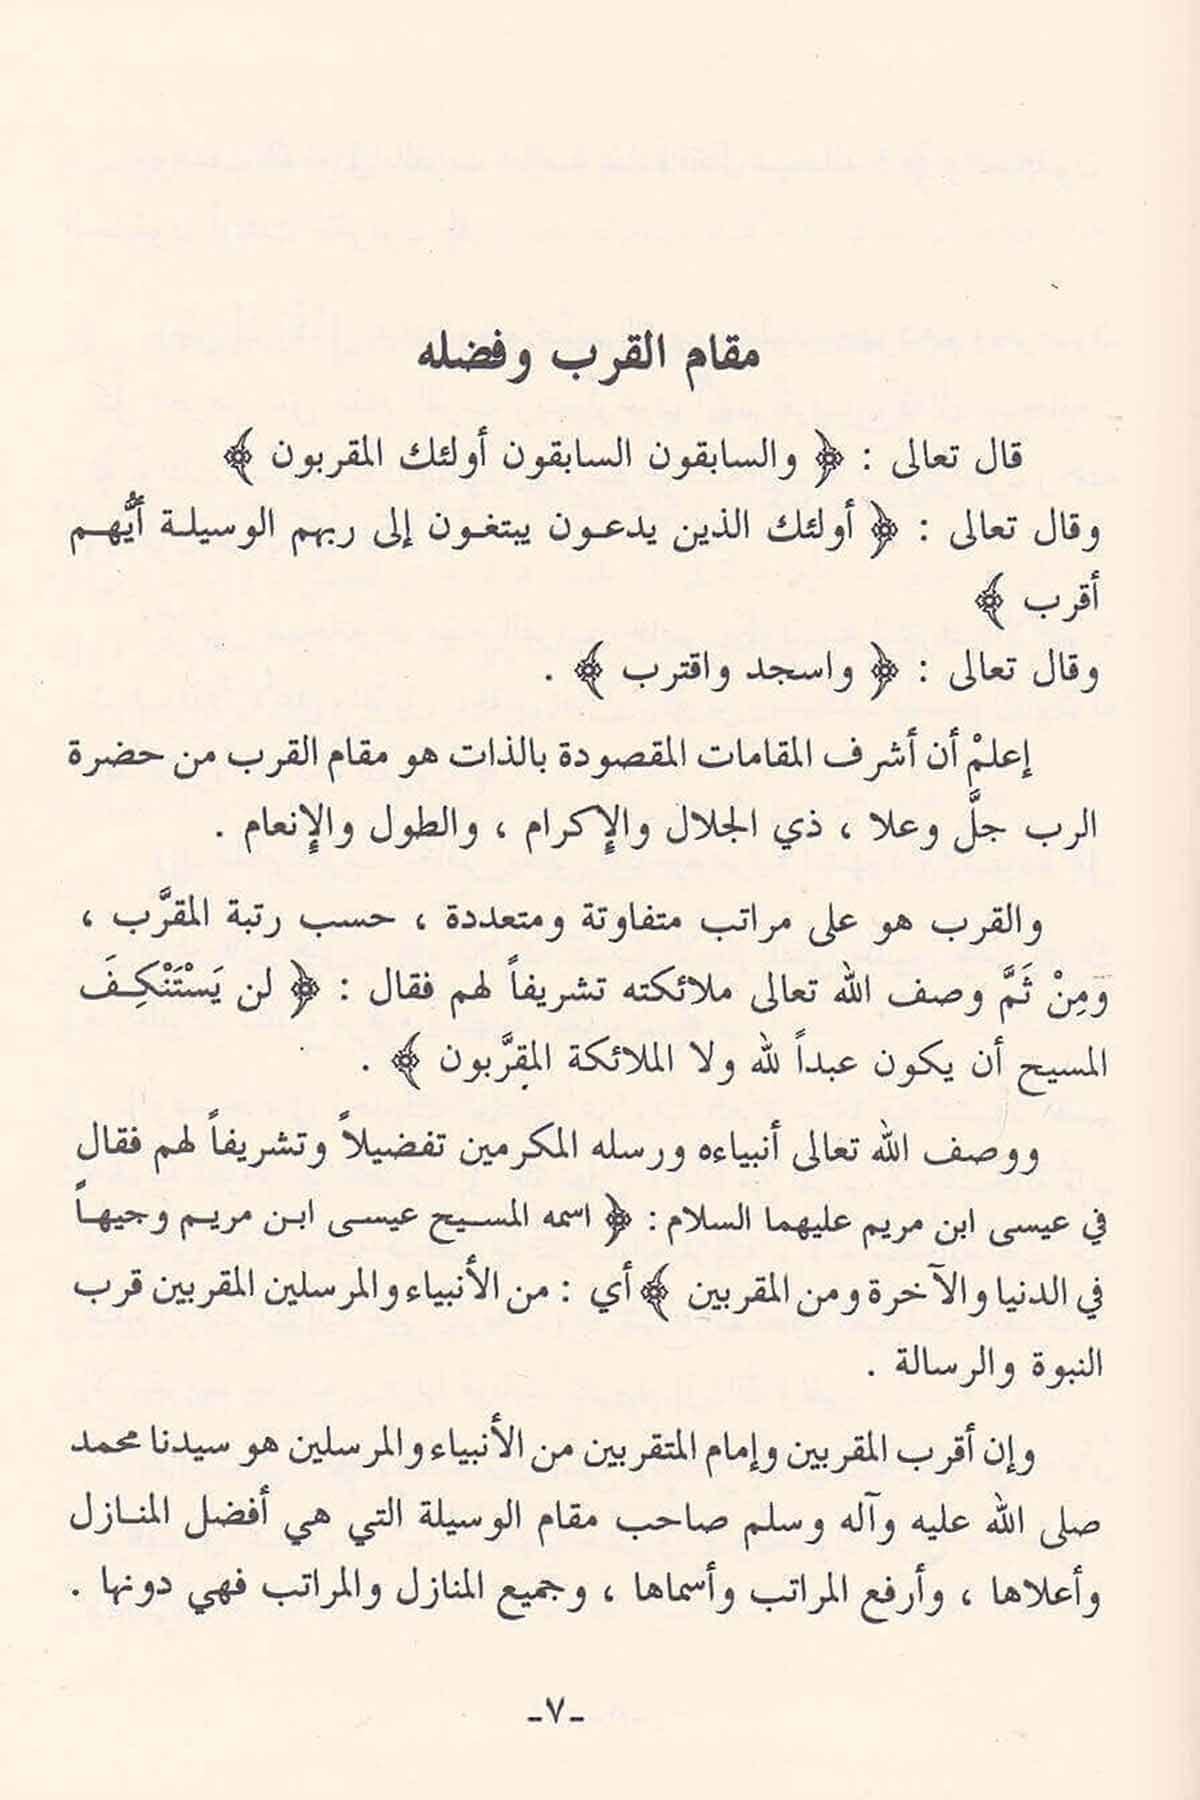 مقام القرب وفضله
قال تعالى : ﴿ والسابقون السابقون أولئك المقربون ﴾
وقال تعالى : ﴿ أولئك الذين يدعون يبتغون إلى ربهم الوسيلة أيُّهم
أقرب ﴾
وقال تعالى : ﴿ واسجد واقترب ﴾ .
إعلمْ أن أشرف المقامات المقصودة بالذات هو مقام القرب من حضرة
الرب جلَّ وعلا ، ذي الجلال والإكرام ، والطول والإنعام .
والقرب هو على مراتب متفاوتة ومتعددة ، حسب رتبة المقرَّب ،
وَمِنْ ثَمَّ وصف الله تعالى ملائكته تشريفاً لهم فقال : ﴿ لن يَسْتَنْكِفَ
المسيح أن يكون عبداً لله ولا الملائكة المقرَّبون ﴾ .
ووصف الله تعالى أنبياءه ورسله المكرمين تفضيلاً وتشريفاً لهم فقال
في عيسى ابن مريم عليهما السلام : ﴿ اسمه المسيح عيسى ابن مريم وجيهاً
في الدنيا والآخرة ومن المقربين ﴾ أي : من الأنبياء والمرسلين المقربين قرب
النبوة والرسالة .
وإن أقرب المقربين وإمام المتقربين من الأنبياء والمرسلين هو سيدنا محمد
صلى الله عليه وآله وسلم صاحب مقام الوسيلة التي هي أفضل المنازل
وأعلاها ، وأرفع المراتب وأسماها ، وجميع المنازل والمراتب فهي دونها .
-٧-